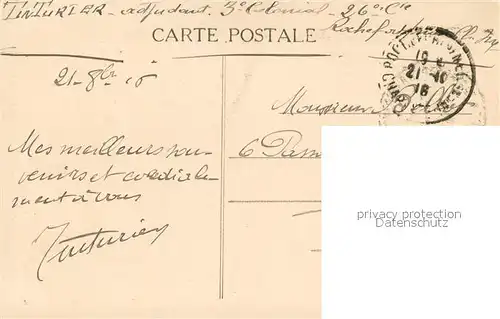 TINTURIER - adjudant. 3e Colonial - 26e Cie
Rochefort
CARTE POSTALE
21-8bre 16
Monsieur
6 Pass
Mes meilleurs sou-
venirs et cordiale-
ment à vous
Tinturier
21-10
16
privacy protection
Datenschutz